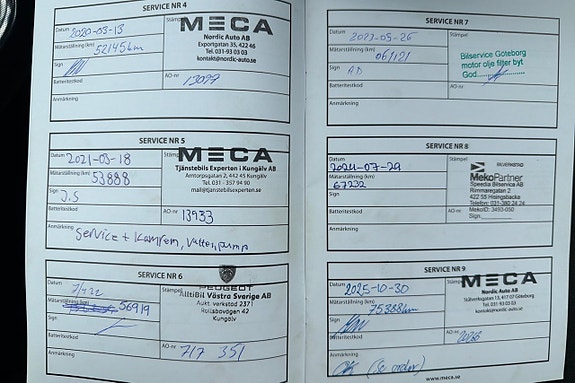 SERVICE NR 4
Datum 2020-03-13 Stämpel MECA
Nordic Auto AB
Exportgatan 35, 422 46
Tel: 031-93 03 02
kontakt@nordic-auto.se
Mätarställning (km) 52145 km
Sign
Batteritestkod AO-nr
Anmärkning
SERVICE NR 5
Datum 2021-03-18 Stämpel MECA
Tjänstebils Experten i Kungälv AB
Amtorpsgatan 2, 442 45 Kungälv
Tel. 031 - 357 94 90
mail@tjanstebilsexperten.se
Mätarställning (km) 53888
Sign J.S
Batteritestkod AO-nr 13933
Anmärkning Service + Kamrem, Vattenpump
SERVICE NR 6
Datum Stämpel PEUGEOT
AlltiBil Västra Sverige AB
Aukt. verkstad 2371
Rollsbovägen 42
Kungälv
Mätarställning (km) 56919
Sign
Batteritestkod AO-nr 717 351
Anmärkning
SERVICE NR 7
Datum Stämpel
Bilservice Göteborg
motor olje filter byt
God
Mätarställning (km)
Sign AD
Batteritestkod AO-nr
Anmärkning
SERVICE NR 8
Datum 2024-07-29 Stämpel
MekoPartner
Speedia Bilservice AB
Rimmaregatan 2
422 55 Hisingsbacka
Telefon: 031-380 24 24
MekoID: 3493-050
Sign:
Mätarställning (km) 67232
Sign
Batteritestkod AO-nr
Anmärkning
SERVICE NR 9
Datum 2025-10-30 Stämpel MECA
Nordic Auto AB
Tel: 031-93 03 02
kontakt@nordic-auto.se
Mätarställning (km) 75388 km
Sign
Batteritestkod AO-nr
Anmärkning (Se order)
www.meca.se